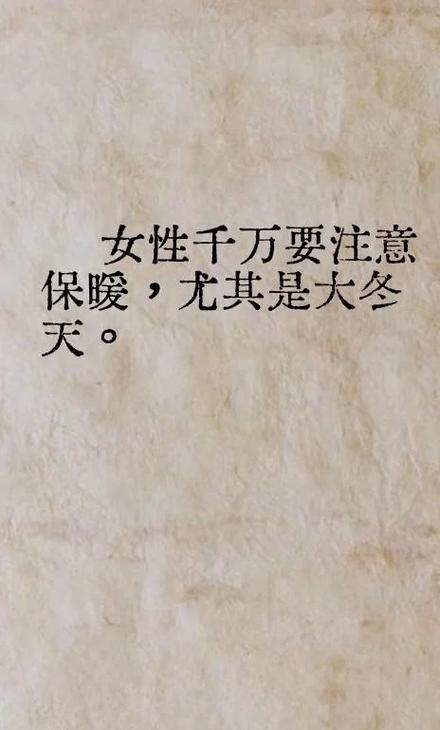 女性千万要注意
保暖，尤其是大冬
天。